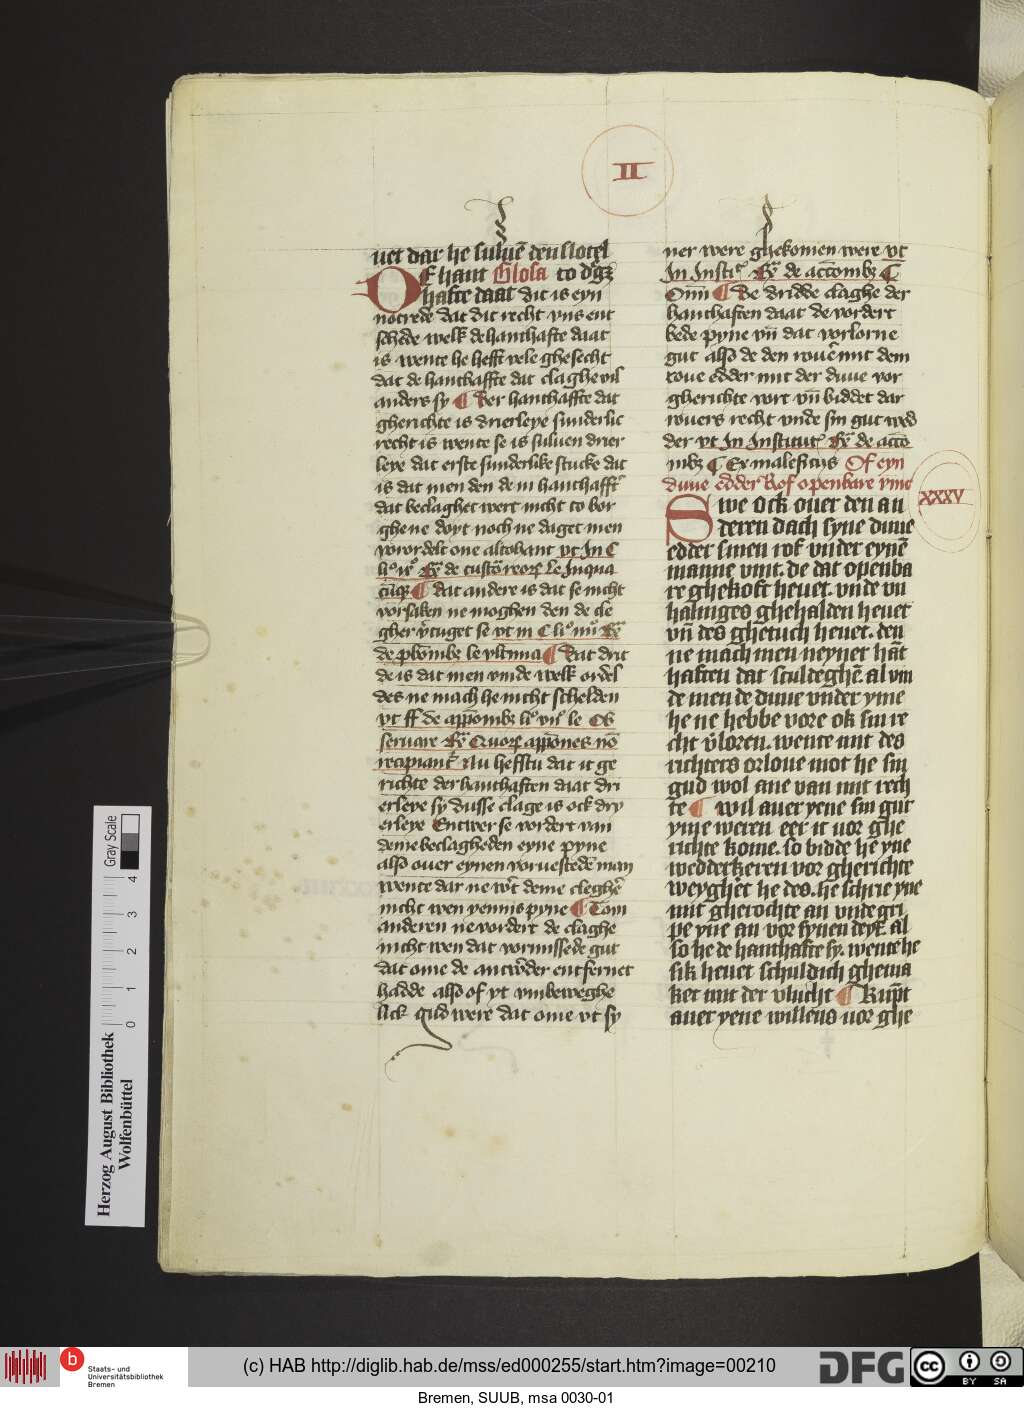 II
uet dar he suluē den slotel
De hant Glosa to dꝰgꝫ
hafte daat dit is eyn
notrede dat dit recht vns ent
schede welk de hanthafte daat
is wente he hefft vele ghesecht
dat de hanthaffte dat claghe vil
anders sy ¶ Der hanthaffte dat
gherichte is drierleye sunderlic
recht is wente se is suluen drier
leye dat erste sunderlike stucke dat
is dat men den de in hanthafftꝰ
dat beclaghet wert nicht to bor
ghene doyt noch ne daget men
vorordelt one altohant vt In C
de custo reorꝝ Le Inqua
cūqꝫ ¶ dat andere is dat se nicht
vorsaken ne moghen den de cle
gher vtuget se vt in C
¶ dat drit
de is dat men vmde welk ordel
des ne mach he nicht schelden
vt ff de le Ob
seruare
recipiant Nu hefftu dat it ge
richte der hanthaften daat dri
erleye sy dusse clage is ock dry
erleye Entwer se vordert van
deme beclagheden eyne pyne
also ouer eynen voruestedē man
wente dar ne wᵉt deme cleghē
nicht wen yennis pyne ¶ Tom
anderen ne vordert de claghe
nicht wen dat vormissede gut
dat ome de antwᵉder entfernet
hadde also of yt vmbeweghe
lick gud were dat ome vt sy
ner were ghekomen were vt
In Insti
Oīm ¶ De dridde claghe der
hanthaften daat de vordert
bede pyne vn̄ dat vorlorne
gut also de den rouer mit dem
roue edder mit der duue vor
gherichte vort vn̄ biddet dar
rouers recht vnde sin gut wed
der vt In Institut de
Ex maleficijs Of eyn
duue edder Rof openbare vint
XXXV
Swe ock ouer den an
deren dach syne duue
edder sinen rof vnder eynē
manne vint. de dat openba
re ghekoft heuet. vnde vn
halinges ghehalden heuet
vn̄ des ghetuch heuet. den
ne mach men neynet hāt
haften dat sculdeghē. al vin
de men de duue vnder yme
he ne hebbe vore ok sin re
cht v̄loren. wente mit des
richters orloue mot he sin
gud wol ane van mit rech
te ¶ wil auer yene sin gut
yme weren eer it uor ghe
richte kome. so bidde he yne
wedderkeren vor gherichte
weyghēt he des. he schrie yne
mit gherochte an vnde gri
pe yne an vor synen deyf. al
so he de hanthafte sy. wente he
sik heuet schuldich ghema
ket mit der vlucht ¶ Kūpt
auer yene willens uor ghe
Gray Scale
0 1 2 3 4
Herzog August Bibliothek
Wolfenbüttel
b
Staats- und
Universitätsbibliothek
Bremen
(c) HAB http://diglib.hab.de/mss/ed000255/start.htm?image=00210
DFG
cc BY SA
Bremen, SUUB, msa 0030-01